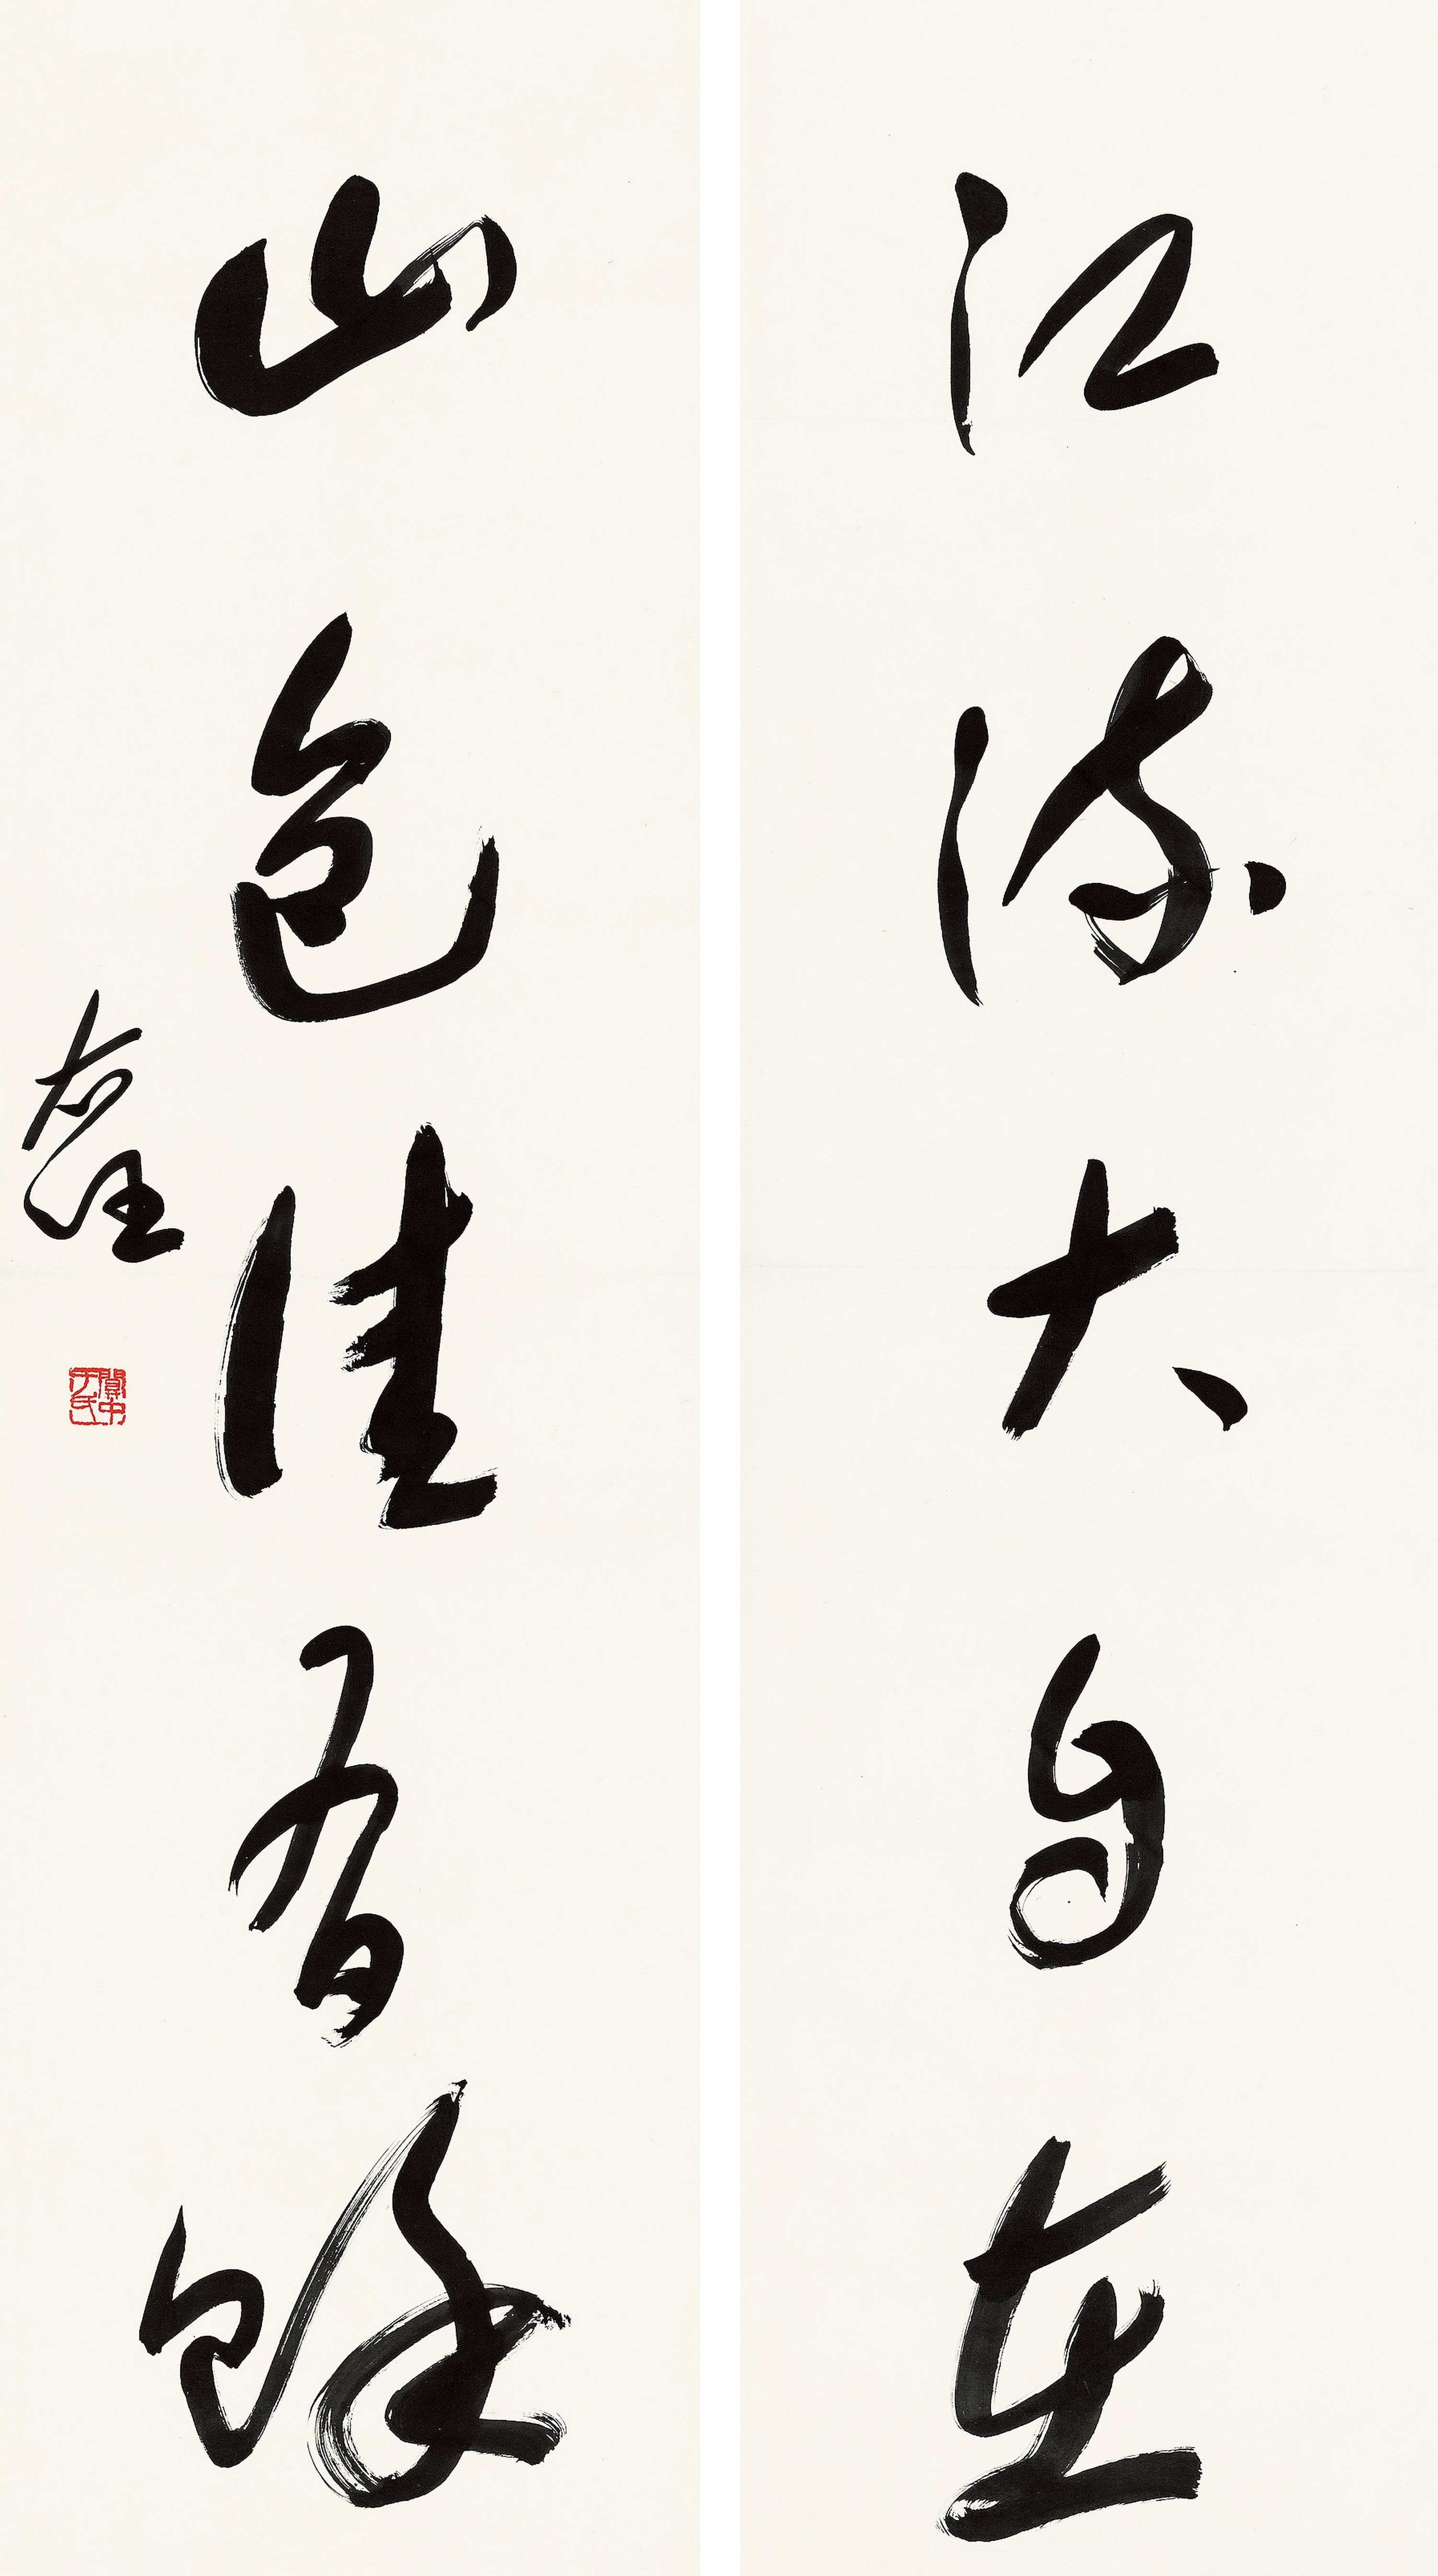 江流大自在
山色佳有餘
右任
關中于氏